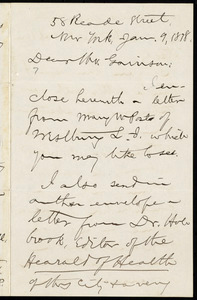 58 Reade Street,
New York, Jan. 9, 1878.
Dear Mr. Garrison:
I en-
close herewith a letter
from Mary W.
Westbury L. I. which
you may like to see.
I also send in
another envelope a
letter from Dr. Hol-
brook, Editor of the
Hearald of Health
of this city—a very